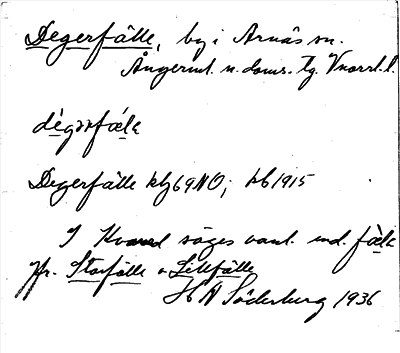 Degerfälle, by i Arnäs sn.
Ångerml. n. doms. tg. Vnorrl. l.
dègərfǽlə
Degerfälle ktj 69 NO; kb 1915
I Kvaved säges vanl. ind. fǽlə
Jfr. Storfälle o Lillfälle
H A Söderberg 1936